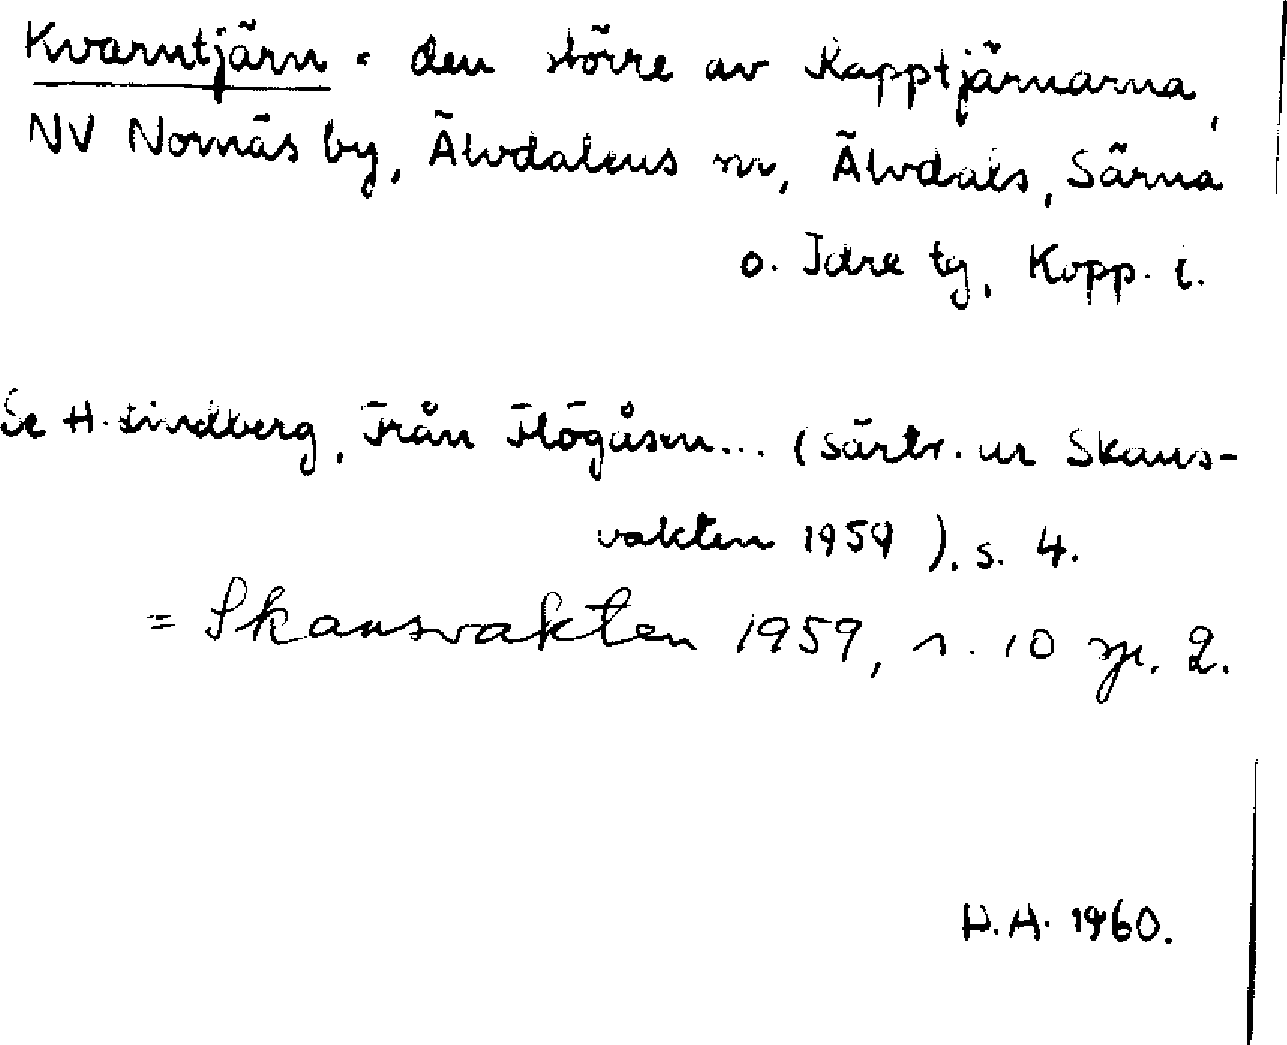 Kvarntjärn = den större av Kapptjärnarna,
NV Nornäs by, Älvdalens sn, Älvdals, Särna
o. Idre tg, Kopp. l.
Se H. Lindberg, Från Flögåsen... (särtr. ur Skans-
vakten 1959), s. 4.
= Skansvakten 1959, s. 10 sp. 2.
H.A. 1960.